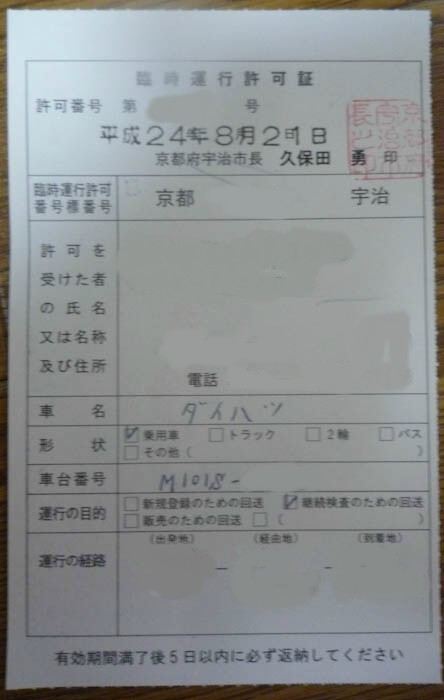 臨時運行許可証
許可番号 第 号
平成24年8月21日
京都府宇治市長 久保田 勇 印
臨時運行許可
番号標番号
京都 宇治
許可を
受けた者
の氏名
又は名称
及び住所
電話
車名 ダイハツ
形状 ☑乗用車 □トラック □2輪 □バス
□その他( )
車台番号 M101S-
運行の目的 □新規登録のための回送 ☑継続検査のための回送
□販売のための回送 □( )
運行の経路 (出発地) (経由地) (到着地)
－ －
有効期間満了後5日以内に必ず返納してください